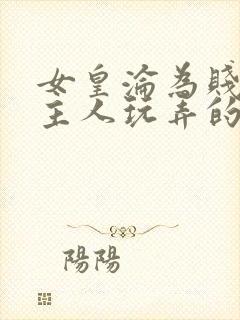 女皇淪為賤
主人玩弄的
陽陽